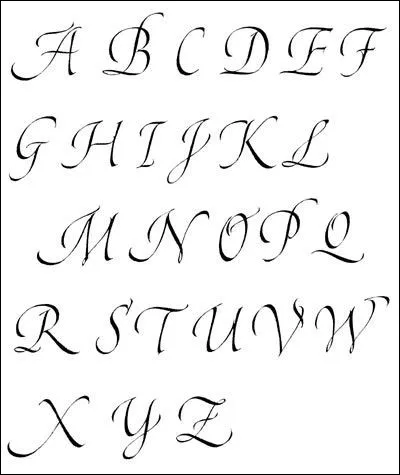 A B C D E F
G H I J K L
M N O P Q
R S T U V W
X Y Z